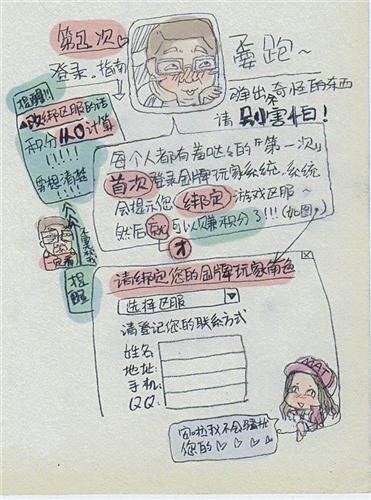 第1次
登录。指南
要跑~
弹出奇怪的东西
请别害怕!
提醒!!!
▲改绑区服的话
积分从0计算
!!!!!
要想清楚
!!!!
一定看
重要
提醒
每个人都有羞哒哒的“第一次”
首次登录金牌玩家系统,系统
会提示您绑定游戏区服~
然后就可以赚积分了!!!(如图)
才
请绑定您的金牌玩家角色
选择区服
请登记您的联系方式
姓名:
地址:
手机:
QQ:
MAT
我不会骚扰
您的